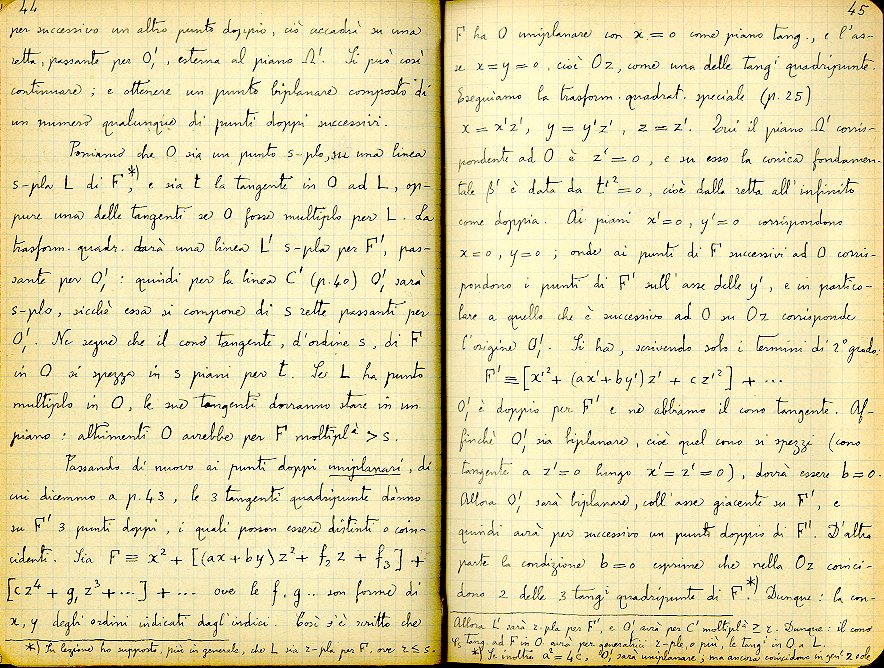 44
per successivo un altro punto doppio, ciò accadrà su una
retta, passante per O'₁, esterna al piano Ω'. Si può così
continuare; e ottenere un punto biplanare composto di
un numero qualunque di punti doppi successivi.
Poniamo che O sia un punto s-plo, su una linea
s-pla L di F*), e sia t la tangente in O ad L, op-
pure una delle tangenti se O fosse multiplo per L. La
trasform. quadr. darà una linea L' s-pla per F', pas-
sante per O'₁: quindi per la linea C' (p.40) O'₁ sarà
s-plo, sicchè essa si compone di s rette passanti per
O'₁. Ne segue che il cono tangente, d'ordine s, di F
in O si spezza in s piani per t. Se L ha punto
multiplo in O, le sue tangenti dovranno stare in un
piano: altrimenti O avrebbe per F moltiplà > s.
Passando di nuovo ai punti doppi uniplanari, di
cui dicemmo a p.43, le 3 tangenti quadripunte dànno
su F' 3 punti doppi, i quali posson essere distinti o coin-
cidenti. Sia F ≡ x² + [(ax+by)z² + f₂z + f₃] +
[cz⁴ + g₁z³ + ...] + ... ove le f, g.. son forme di
x, y degli ordini indicati dagl'indici. Così s'è scritto che
*) In lezione ho supposto, più in generale, che L sia r-pla per F, ove r ≤ s.
45
F ha O uniplanare con x = 0 come piano tang., e l'as-
se x=y=0, cioè Oz, come una delle tangⁱ quadripunte.
Eseguiamo la trasform. quadrat. speciale (p.25)
x = x'z', y = y'z', z = z'. Qui il piano Ω' corris-
pondente ad O è z' = 0, e su esso la conica fondamen-
tale β' è data da t'² = 0, cioè dalla retta all'infinito
come doppia. Ai piani x'=0, y'=0 corrispondono
x=0, y=0; onde ai punti di F successivi ad O corris-
pondono i punti di F' sull'asse delle y', e in partico-
lare a quello che è successivo ad O su Oz corrisponde
l'origine O'₁. Si ha, scrivendo solo i termini di 2° grado:
F' ≡ [x'² + (ax'+by')z' + cz'²] + ...
O'₁ è doppio per F' e ne abbiamo il cono tangente. Af-
finchè O'₁ sia biplanare, cioè quel cono si spezzi (cono
tangente a z'=0 lungo x'=z'=0), dovrà essere b=0.
Allora O'₁ sarà biplanare, coll'asse giacente su F', e
quindi avrà per successivo un punto doppio di F'. D'altra
parte la condizione b=0 esprime che nella Oz coinci-
dono 2 delle 3 tangⁱ quadripunte di F*). Dunque: la con-
Allora L' sarà r-pla per F', e O'₁ avrà per C' moltiplà ≥ r. Dunque: il cono
tang. ad F in O avrà per generatrici r-ple, o più, le tangⁱ in O a L.
*) Se inoltre a²=4c, O'₁ sarà uniplanare; ma ancora coincidono in genⁱ 2 sole